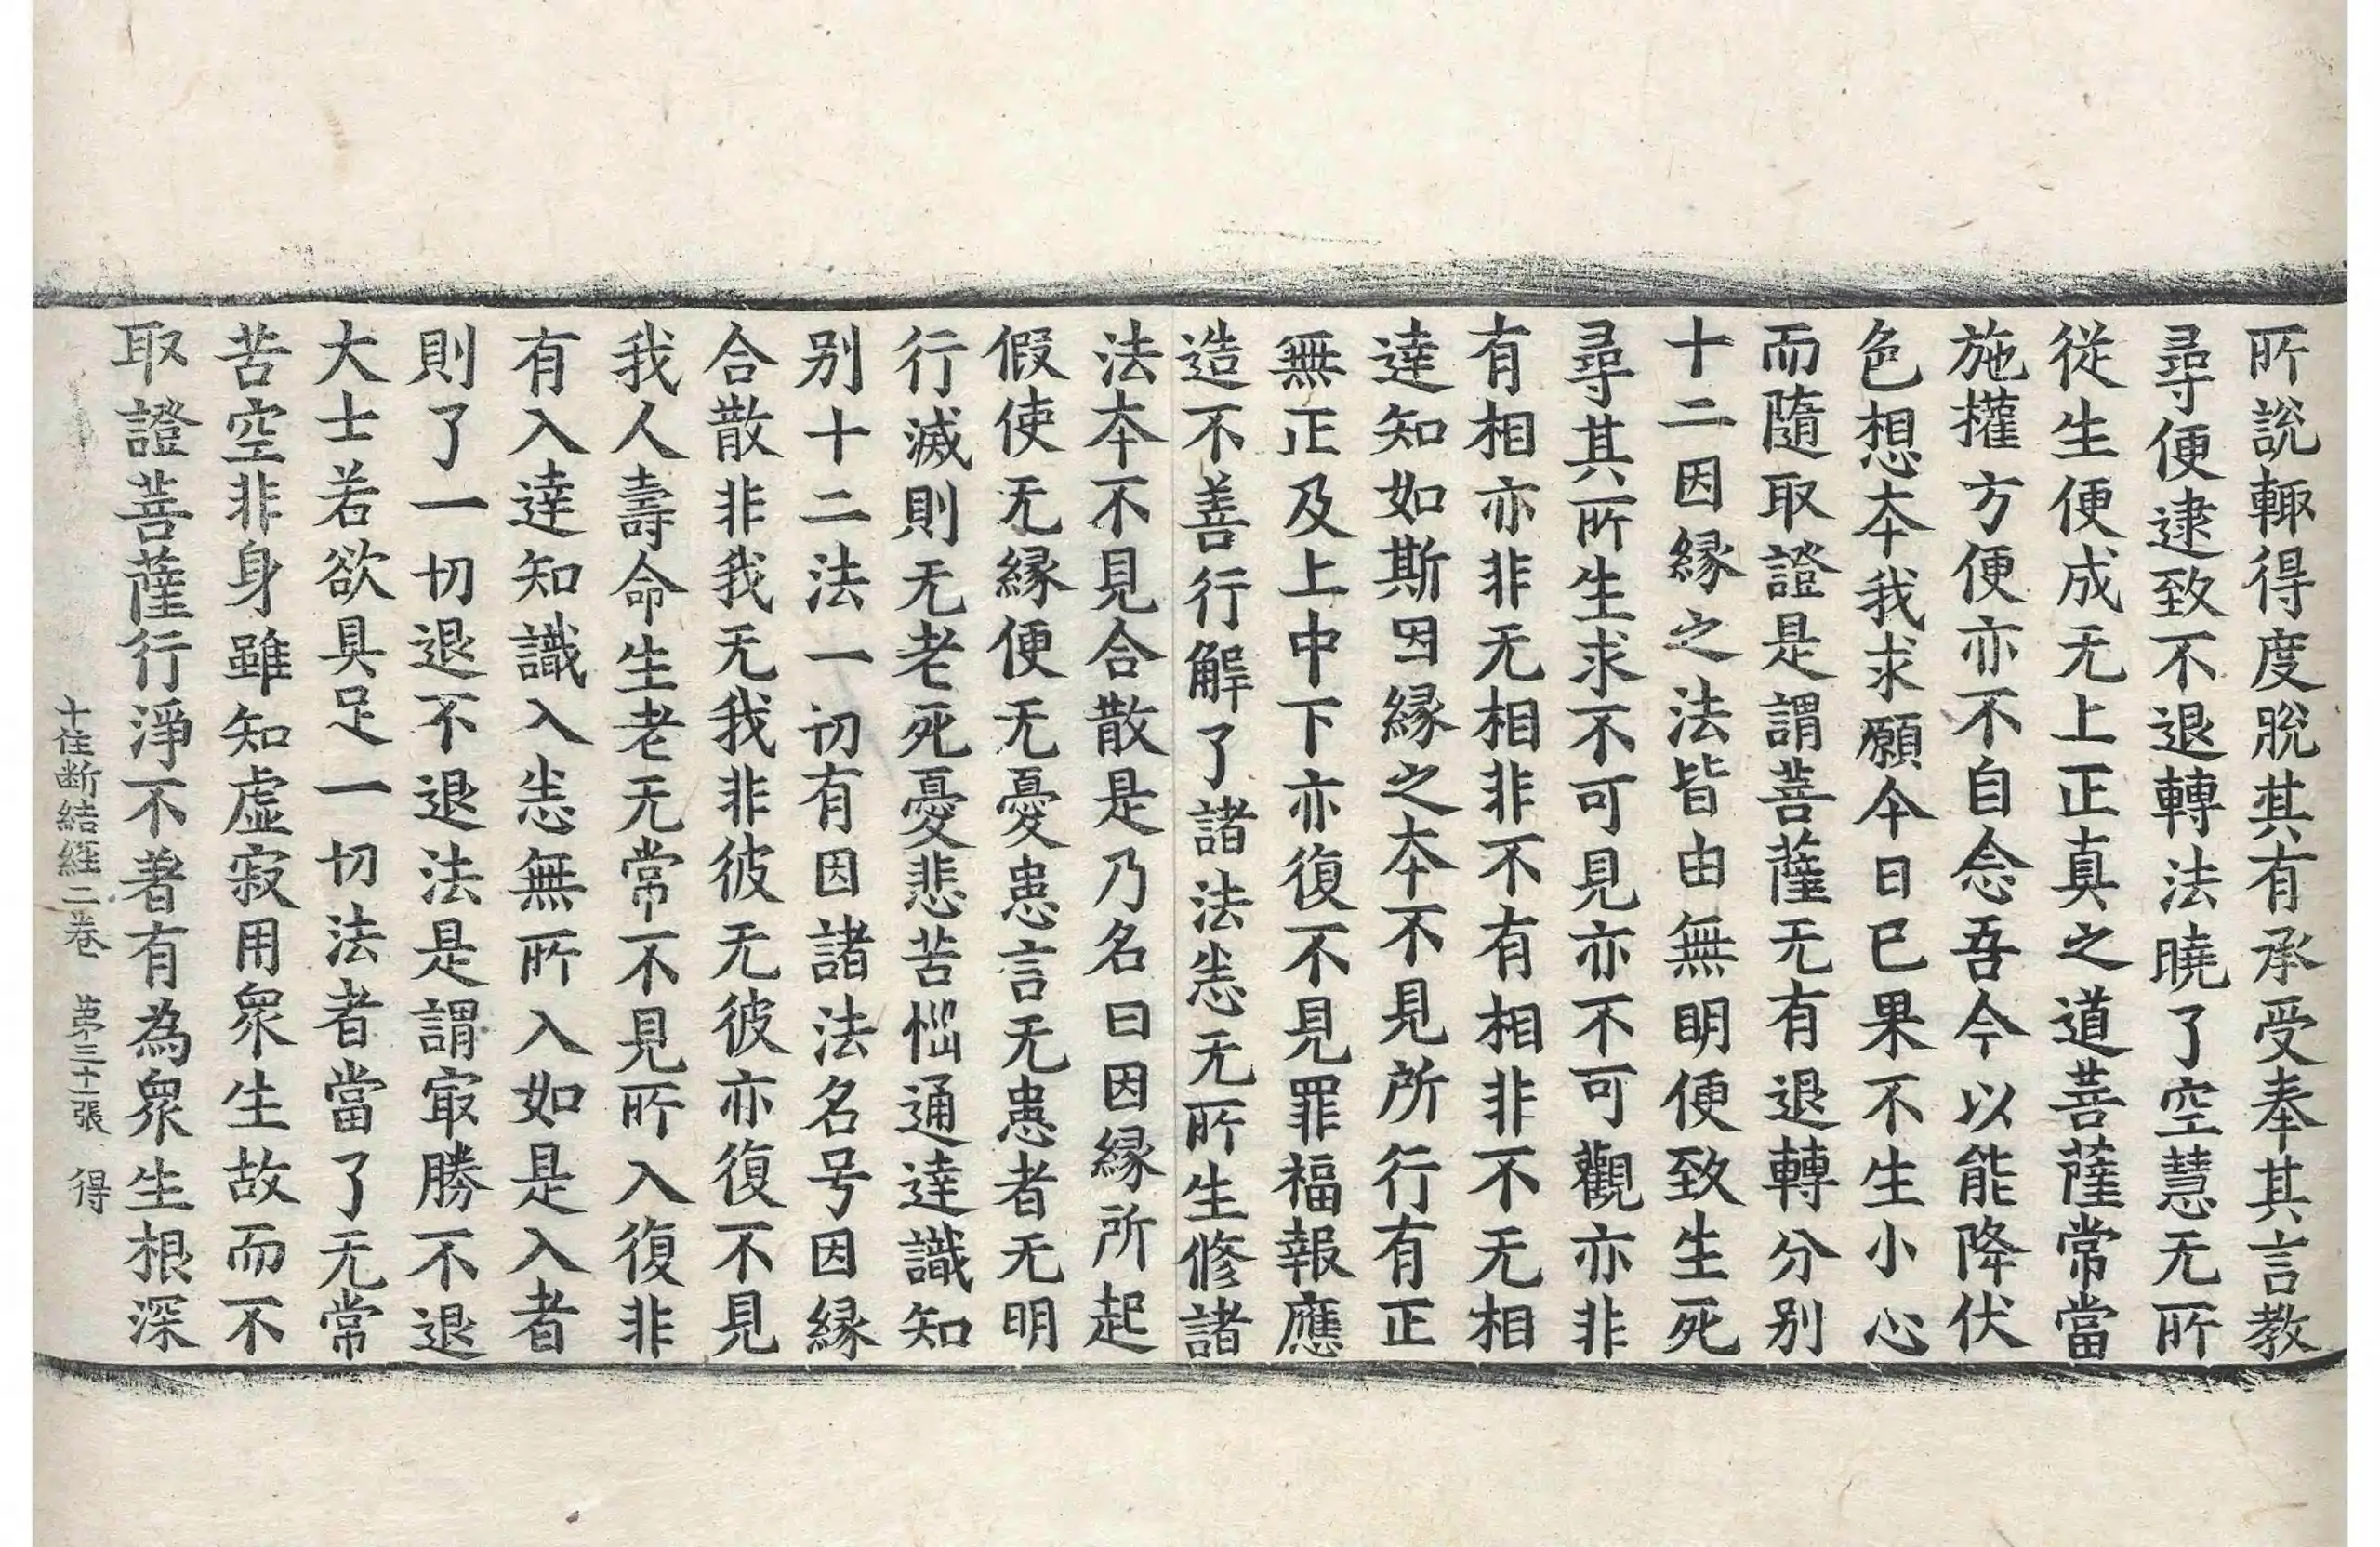 所說輙得度脫其有承受奉其言教
尋便逮致不退轉法曉了空慧无所
從生便成无上正真之道菩薩常當
施權方便亦不自念吾今以能降伏
色想本我求願今日已果不生小心
而隨取證是謂菩薩无有退轉分别
十二因緣之法皆由無明便致生死
尋其所生求不可見亦不可觀亦非
有相亦非无相非不有相非不无相
達知如斯因緣之本不見所行有正
無正及上中下亦復不見罪福報應
造不善行解了諸法恚无所生修諸
法本不見合散是乃名曰因緣所起
假使无緣便无憂患言无患者无明
行滅則无老死憂悲苦惱通達識知
别十二法一切有因諸法名号因緣
合散非我无我非彼无彼亦復不見
我人壽命生老无常不見所入復非
有入達知識入恚無所入如是入者
則了一切退不退法是謂㝡勝不退
大士若欲具足一切法者當了无常
苦空非身雖知虛寂用衆生故而不
取證菩薩行淨不著有為衆生根深
十住断結經二卷 苐三十一張 得